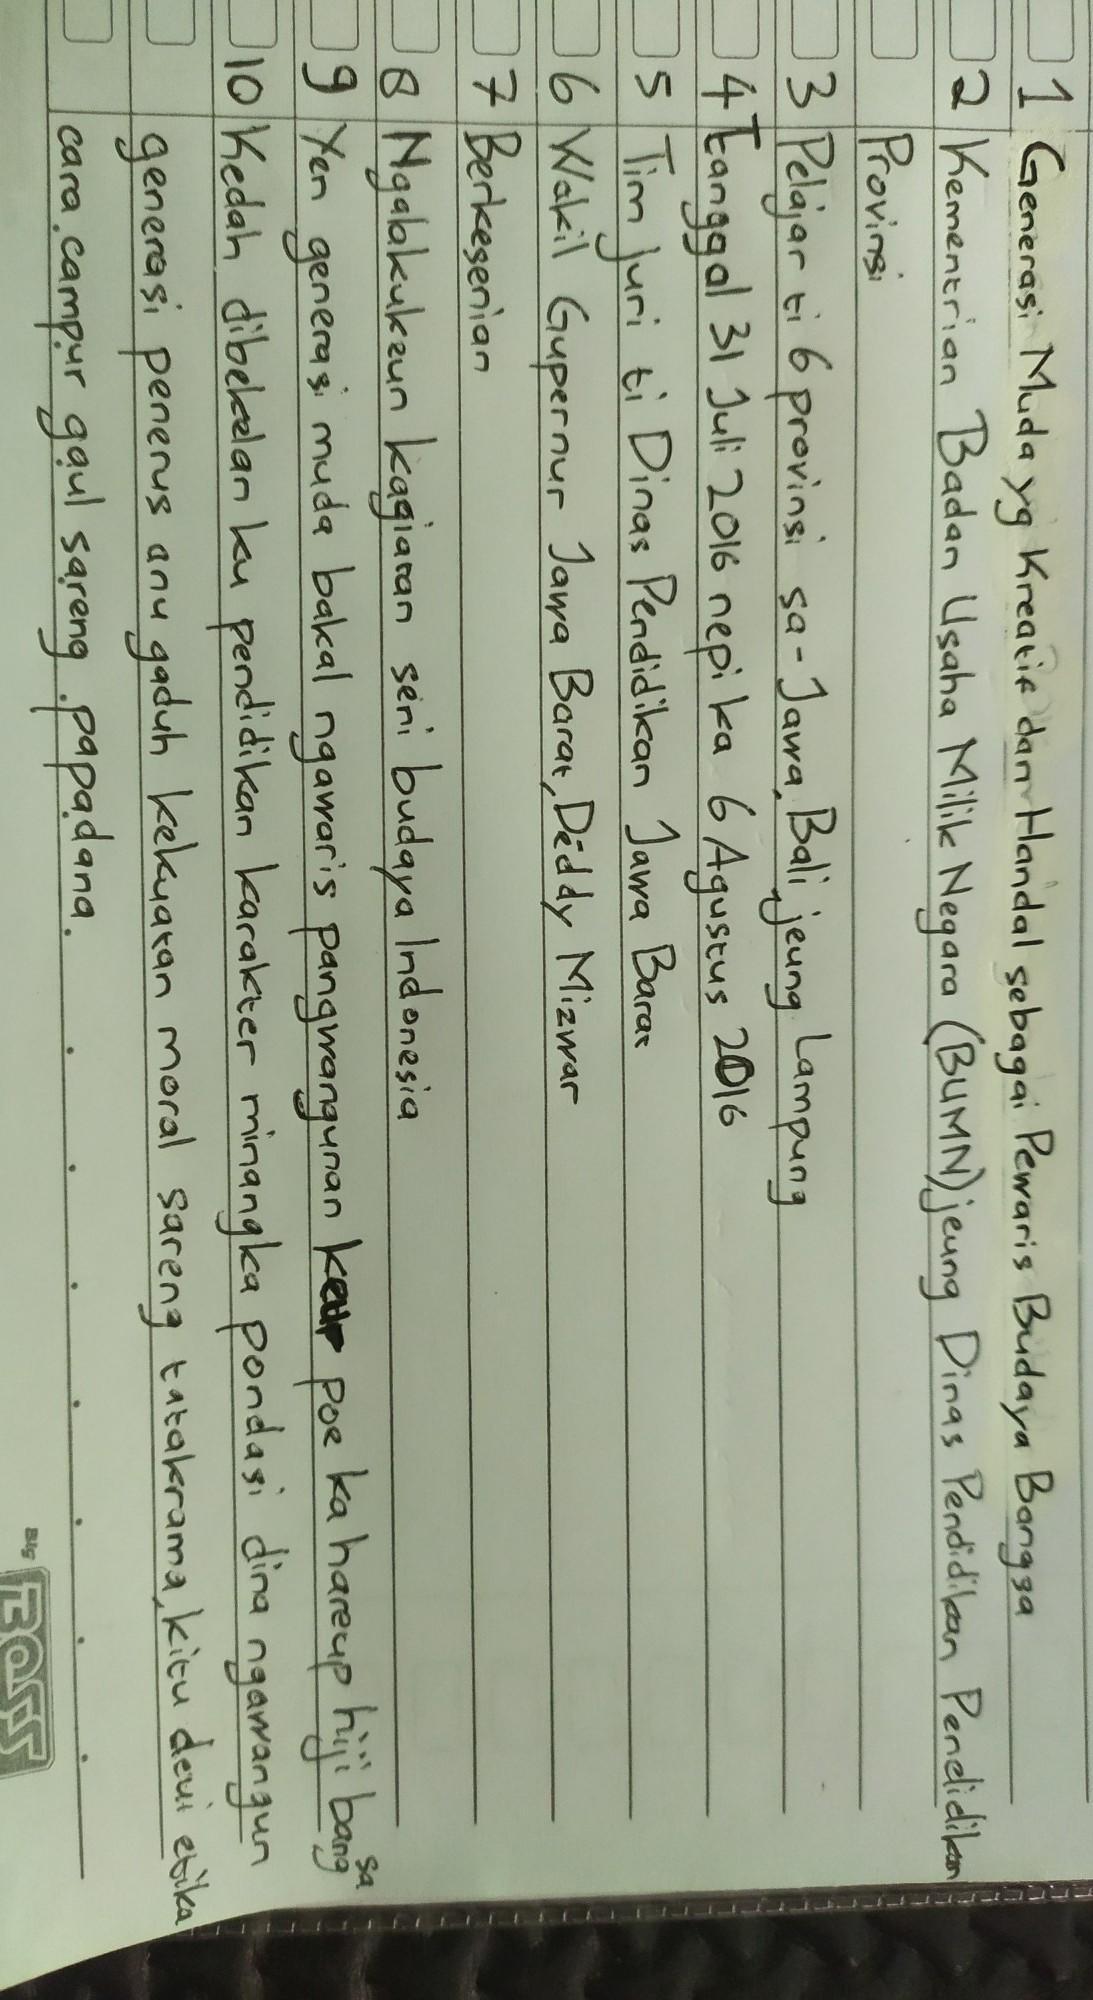 1 Generasi Muda yg Kreatif dan Handal sebagai Pewaris Budaya Bangsa
2 Kementrian Badan Usaha Milik Negara (BUMN) jeung Dinas Pendidikan Pendidikan
Provinsi
3 Pelajar ti 6 provinsi sa-Jawa, Bali, jeung Lampung
4 Tanggal 31 Juli 2016 nepi ka 6 Agustus 2016
5 Tim juri ti Dinas Pendidikan Jawa Barat
6 Wakil Gupernur Jawa Barat, Deddy Mizwar
7 Berkesenian
8 Ngalakukeun kagiatan seni budaya Indonesia
9 Yen generasi muda bakal ngawaris pangwangunan poe ka hareup hiji bangsa
10 Kedah dibekelan ku pendidikan karakter minangka pondasi dina ngawangun
generasi penerus anu gaduh kekuatan moral sareng tatakrama, kitu deui etika
cara campur gaul sareng papadana.
Big BOSS